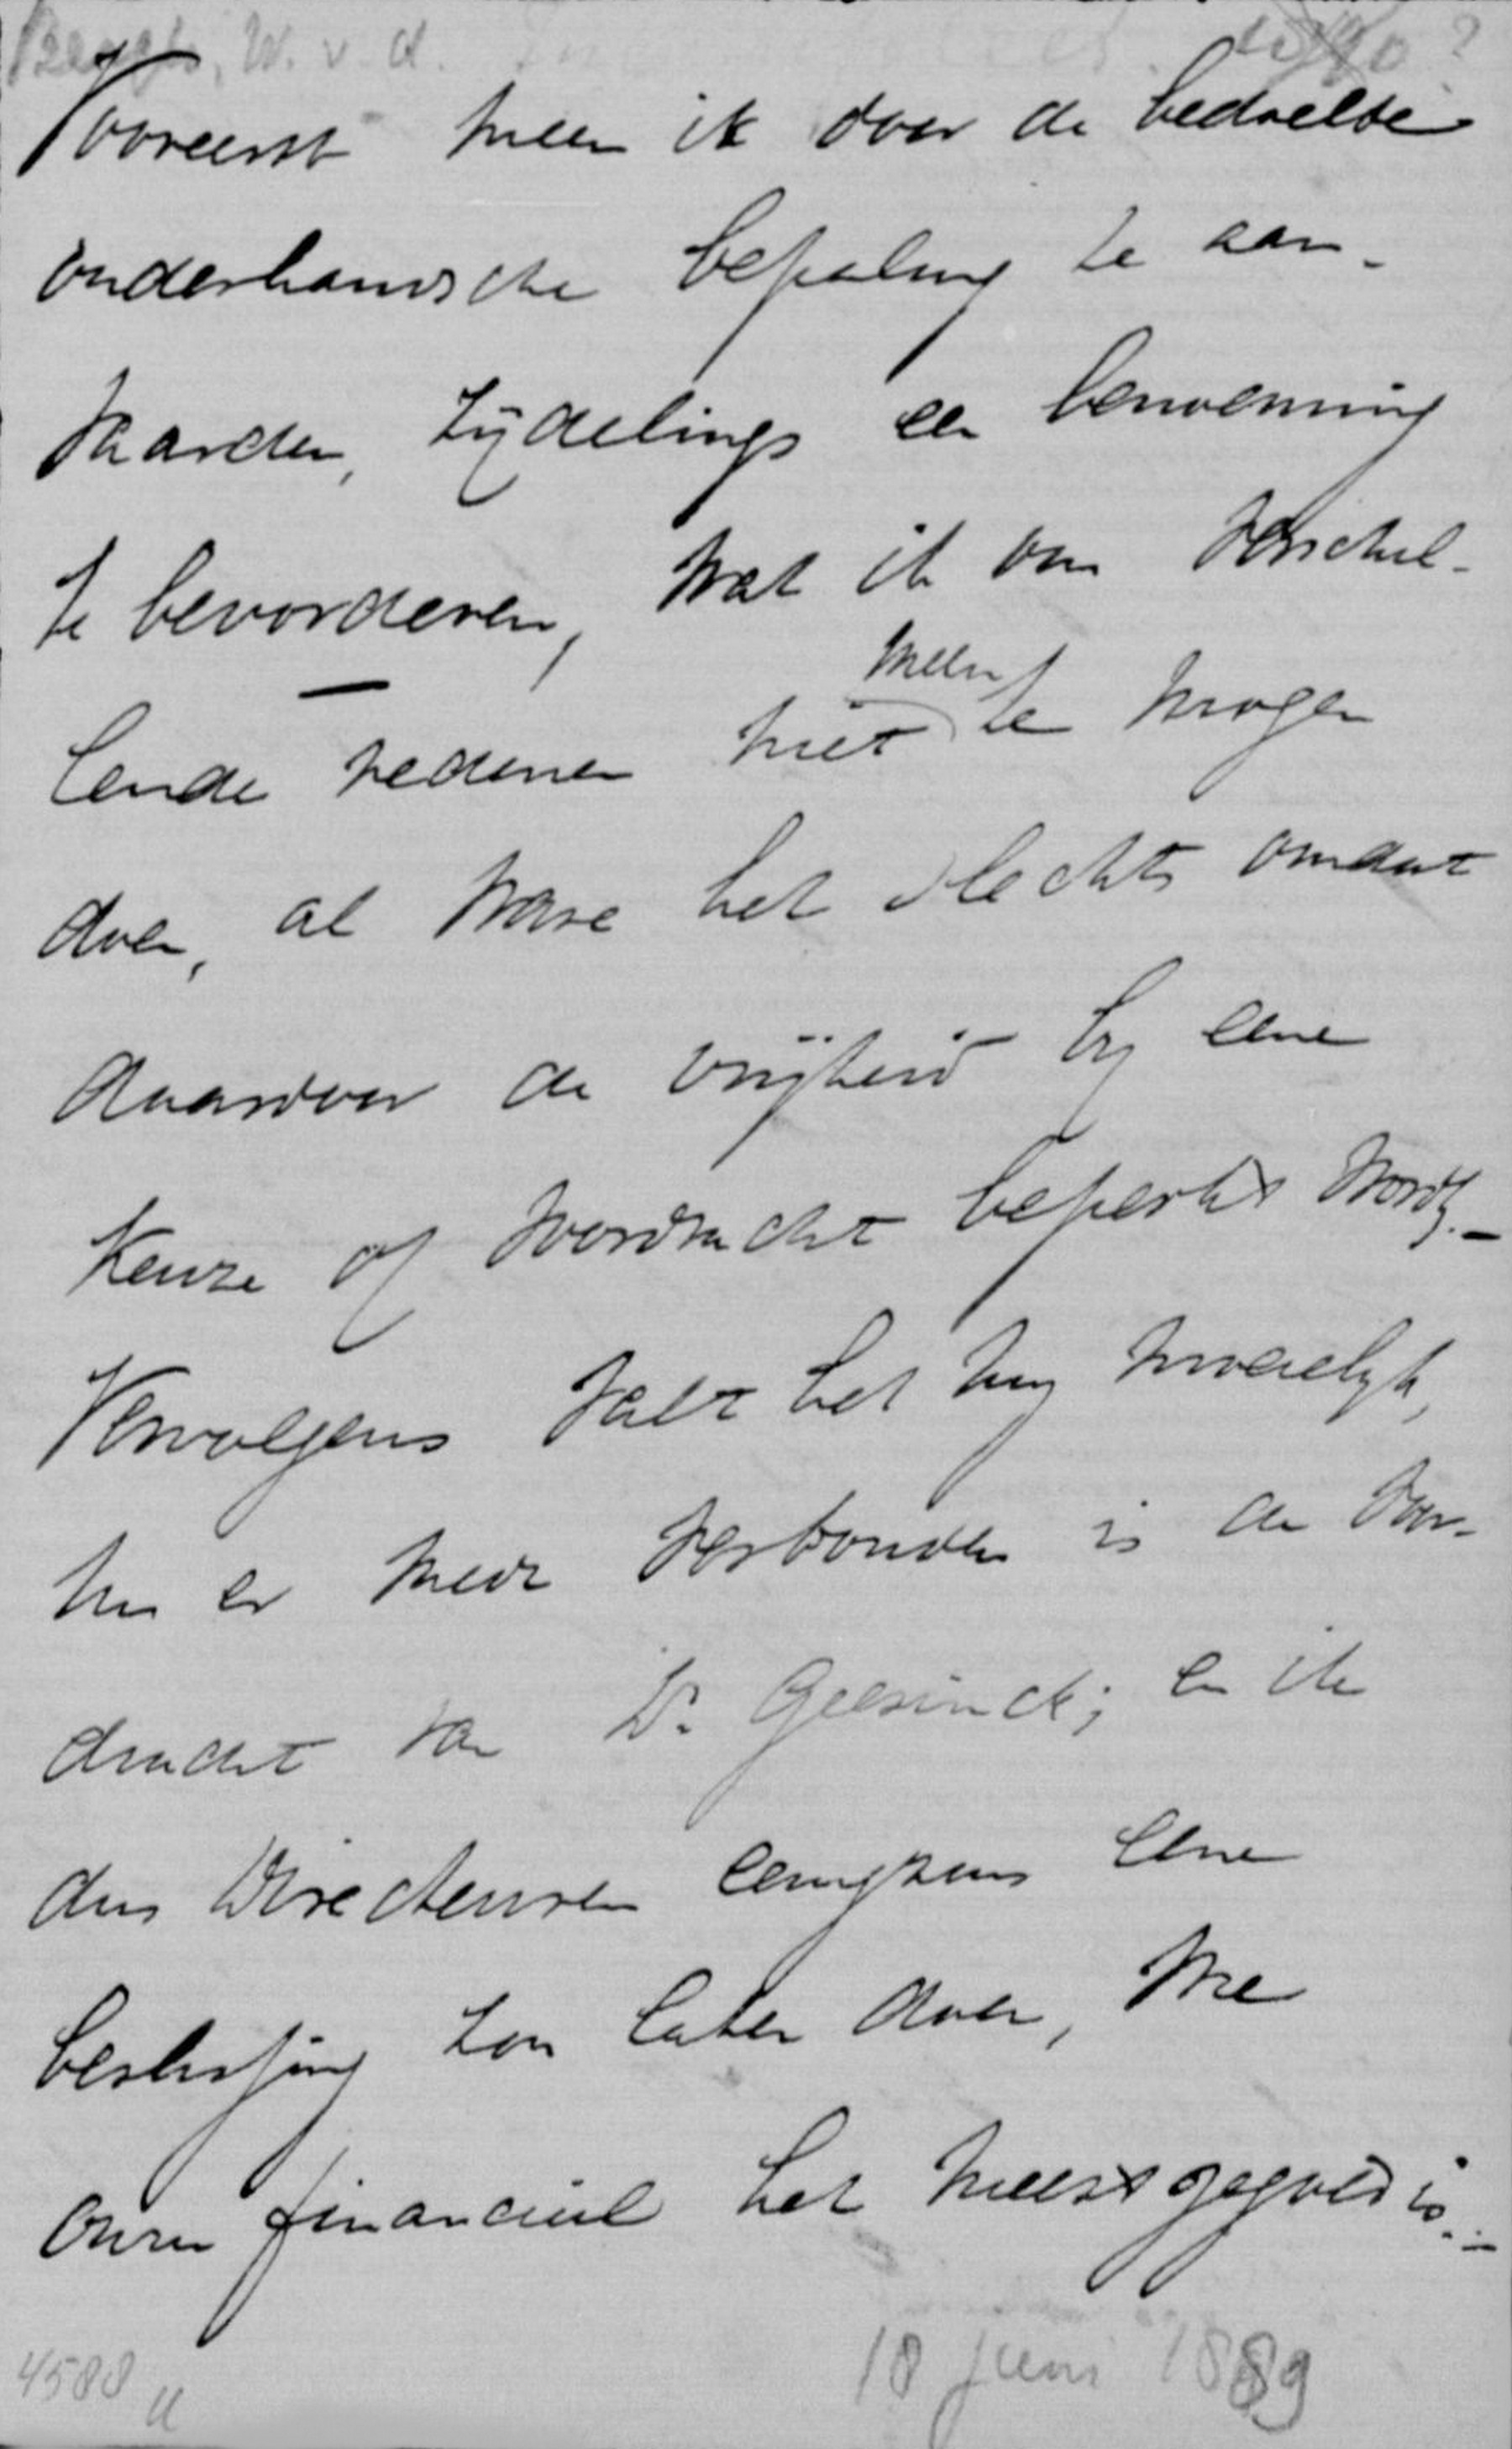 Bergh, W. v. d. 1890 ?
Vooreerst meen ik door de bedoelde
onderhandsche bepaling te aan-
vaarden, zijdelings een benoeming
te bevorderen, wat ik om verschil-
meen
lende redenen niet te mogen
doen, al ware het slechts omdat
daardoor de vrijheid bij eene
keuze of voordracht beperkt wordt.-
Vervolgens valt het mij moeielijk,
nu er mede verbonden is de voor-
dracht van Dr. Geesinck; en ik
dus Directeuren eenigszins eene
beslissing zou laten doen, die
financieel het meest gegoed is.-
18 juni 1889
4588